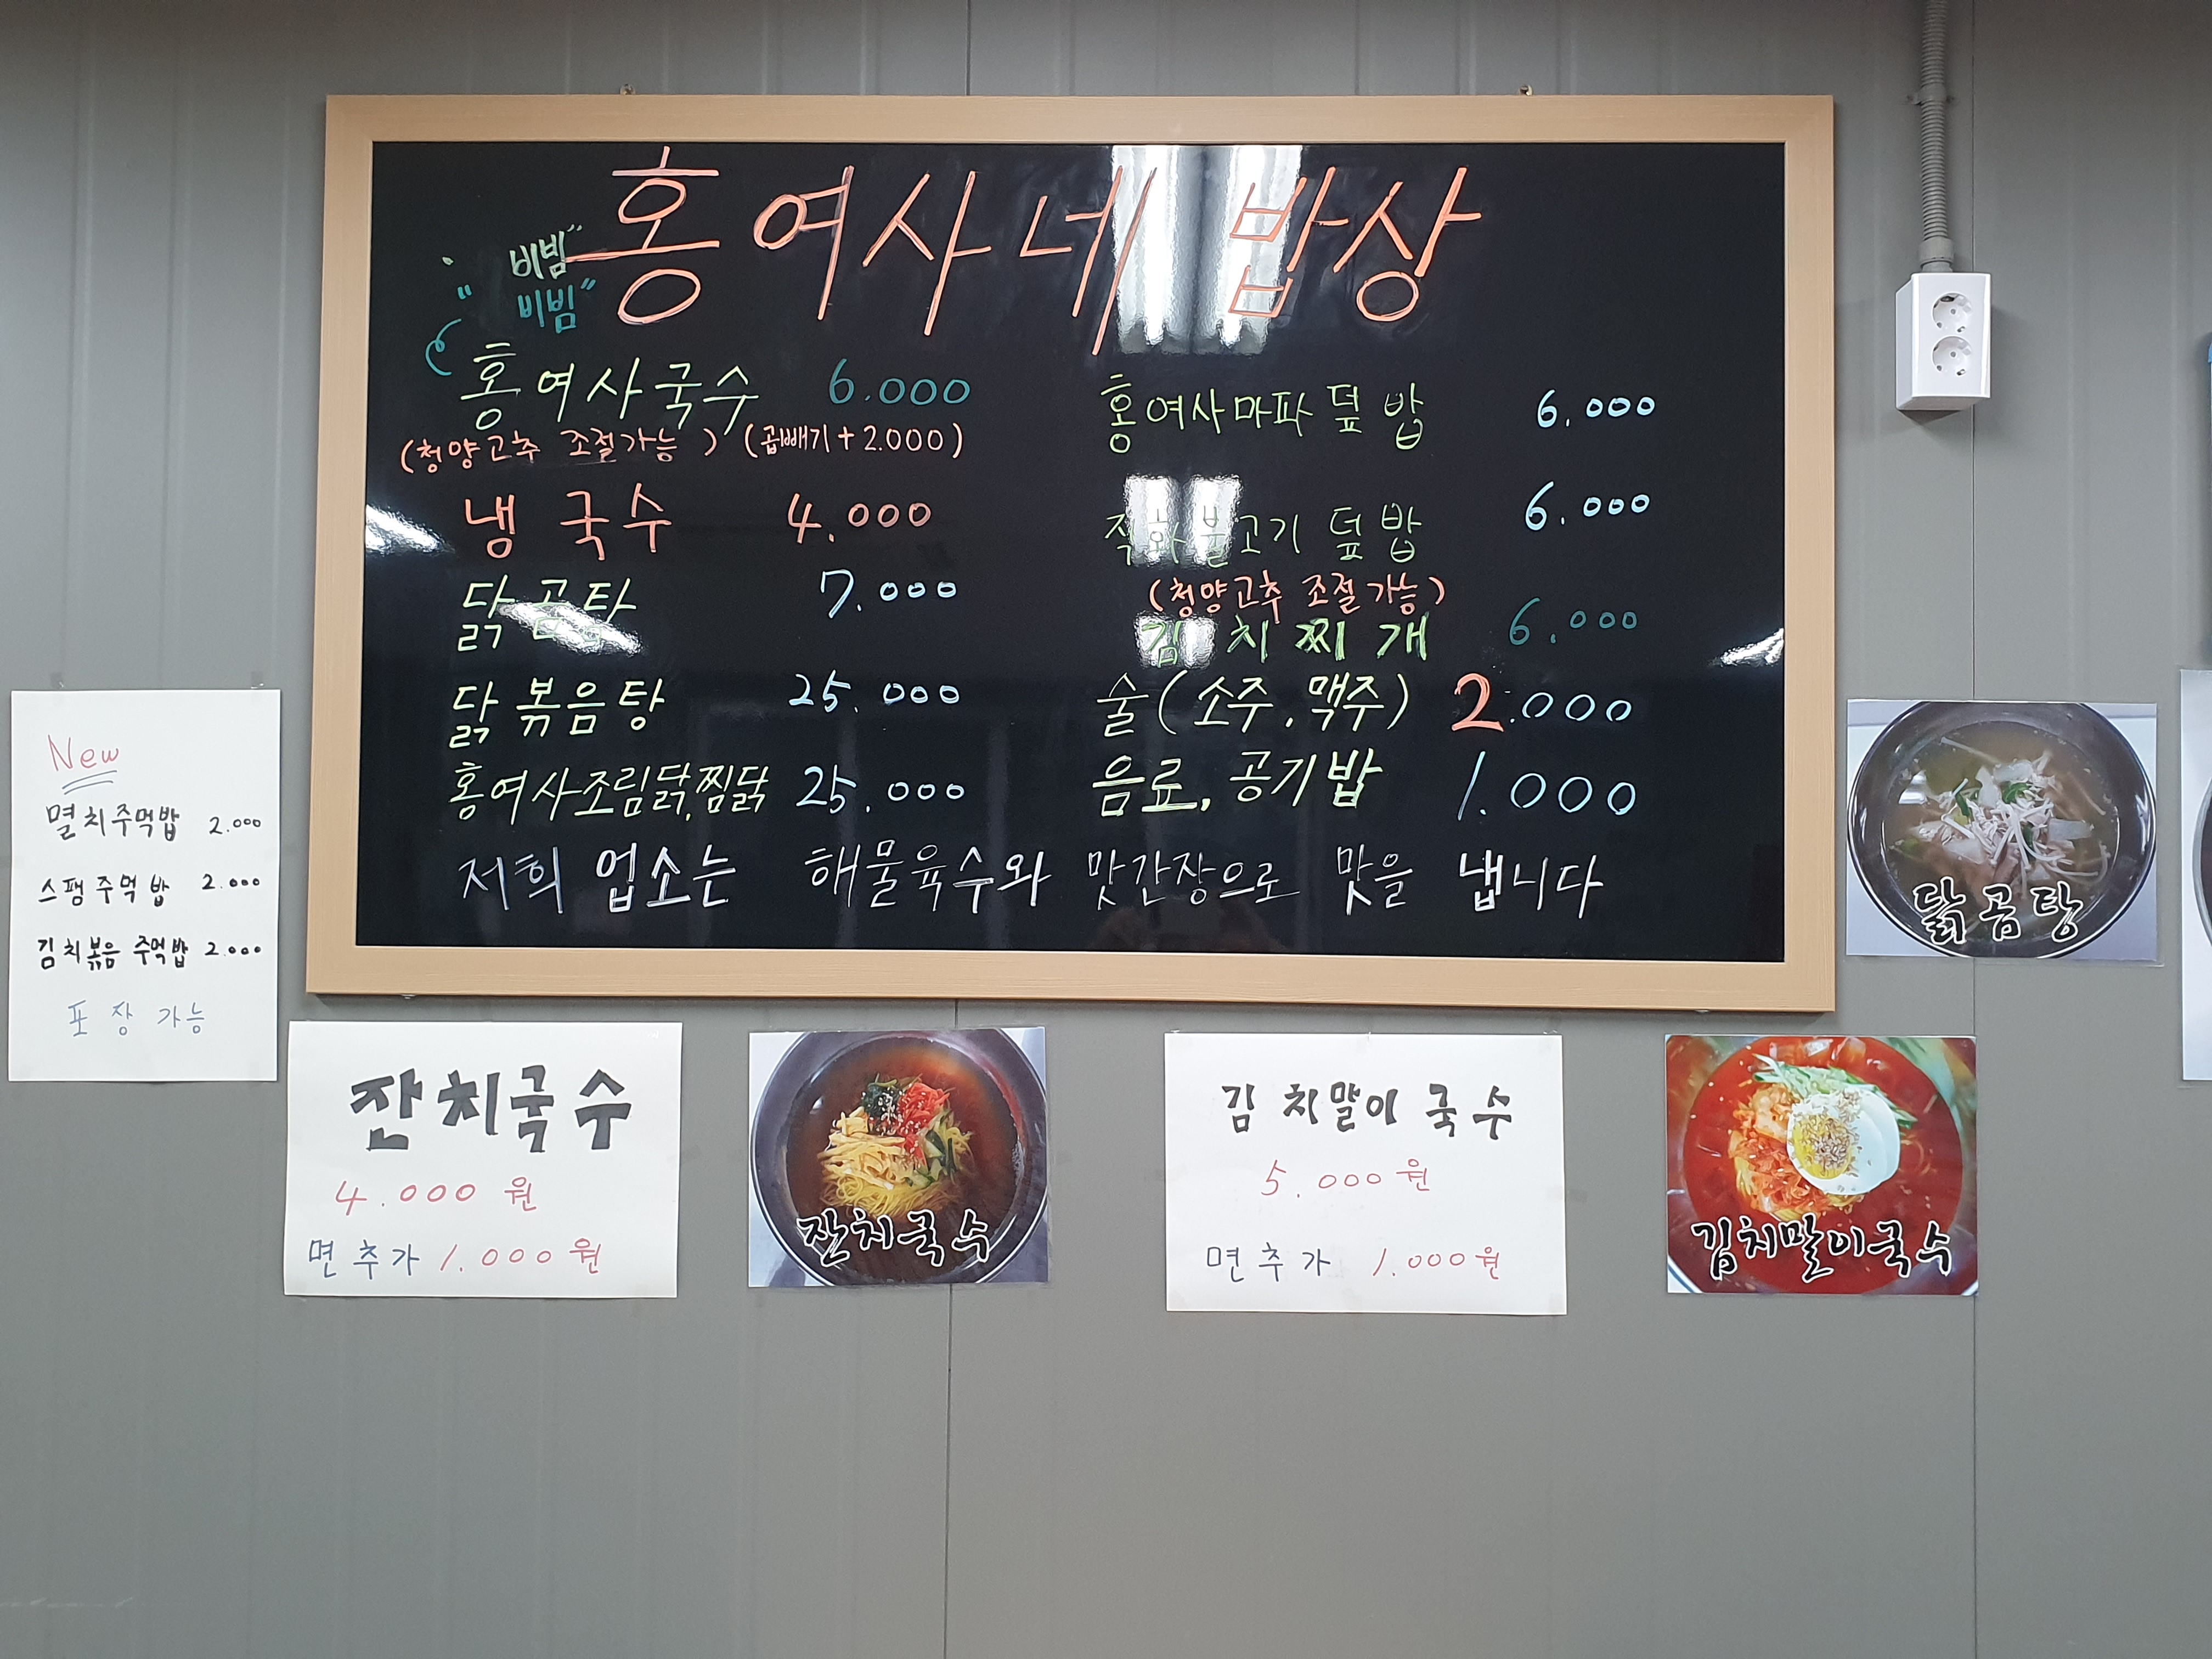 홍여사네 밥상
"비빔"
"비빔"
홍여사국수 6.000
(청양고추 조절가능) (곱빼기+2.000)
냉국수 4.000
닭곰탕 7.000
닭볶음탕 25.000
홍여사조림닭,찜닭 25.000
홍여사마파덮밥 6.000
직화불고기 덮밥 6.000
(청양고추 조절가능)
김치찌개 6.000
술(소주.맥주) 2.000
음료, 공기밥 1.000
저희 업소는 해물육수와 맛간장으로 맛을 냅니다
New
멸치주먹밥 2.000
스팸주먹밥 2.000
김치볶음 주먹밥 2.000
포장 가능
잔치국수
4.000 원
면추가 1.000원
잔치국수
김치말이 국수
5.000원
면추가 1.000원
김치말이국수
닭곰탕